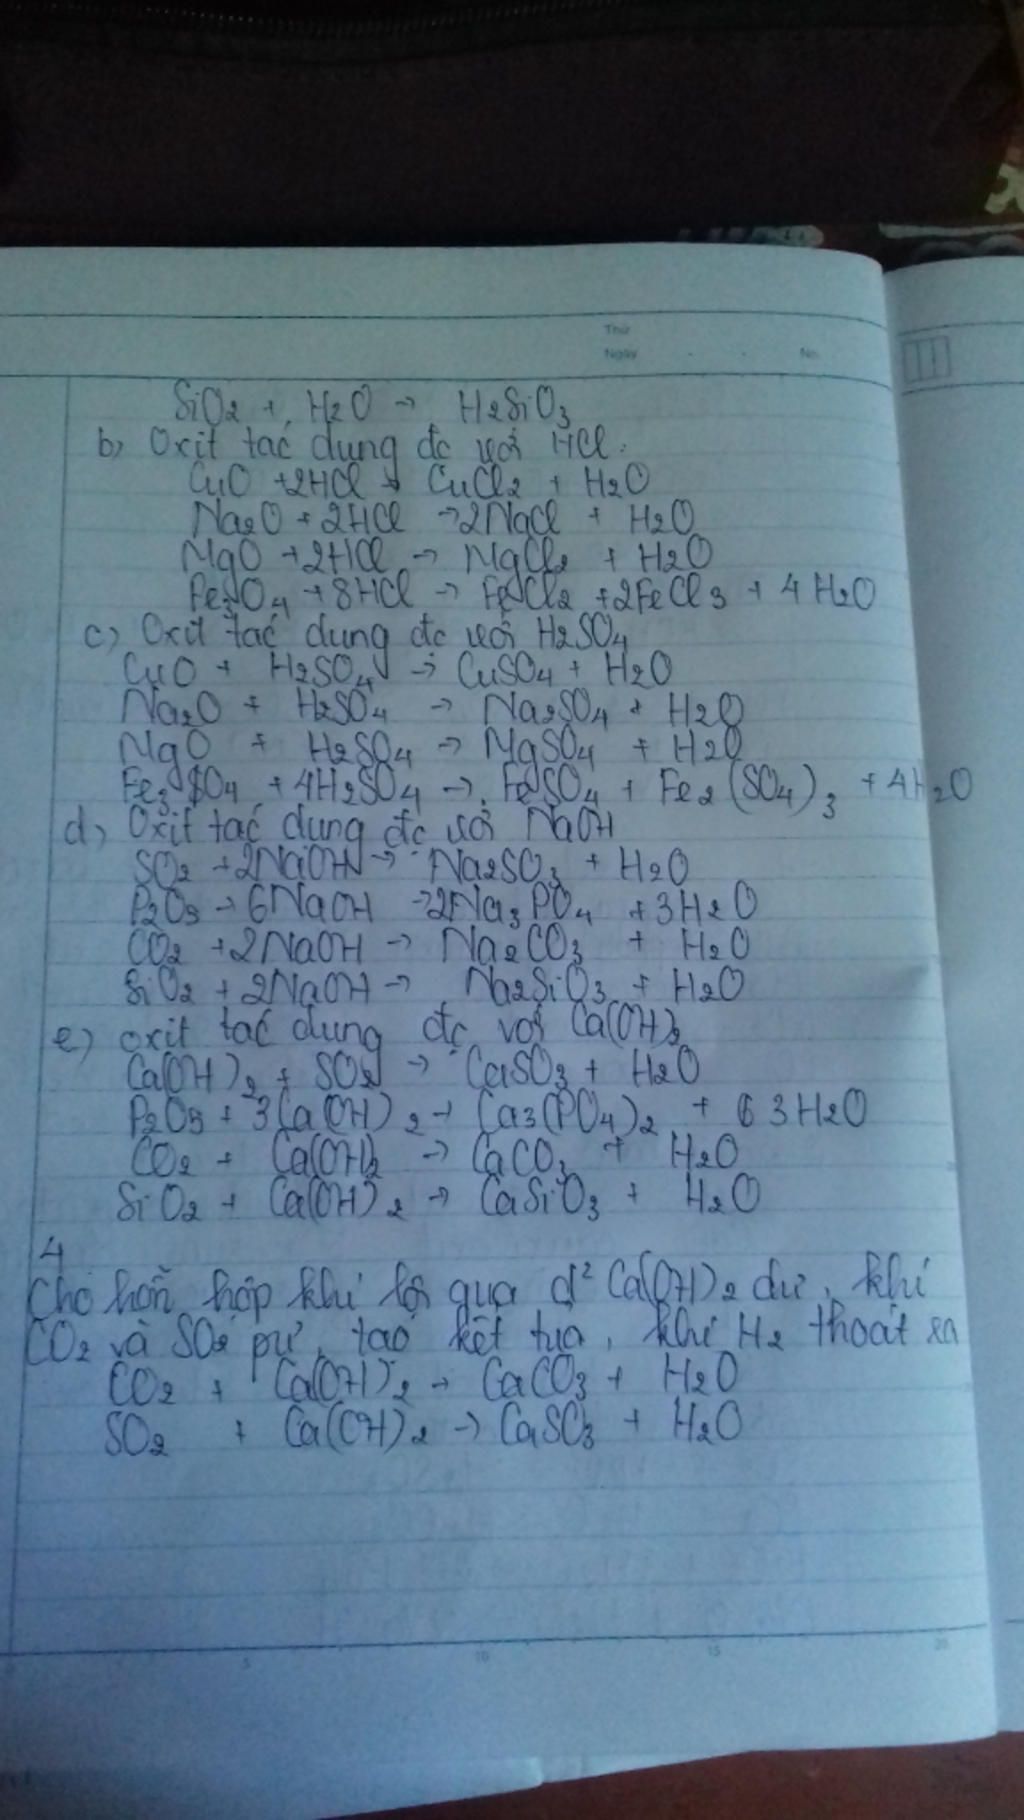 Thứ
Ngày . . No.
SiO2 + H2O → H2SiO3
b) Oxit tác dụng đc với HCl:
CuO +2HCl → CuCl2 + H2O
Na2O + 2HCl →2NaCl + H2O
MgO +2HCl → MgCl2 + H2O
Fe3O4 + 8HCl → FeCl2 +2FeCl3 + 4H2O
c) Oxit tác dụng đc với H2SO4
CuO + H2SO4 → CuSO4 + H2O
Na2O + H2SO4 → Na2SO4 + H2O
MgO + H2SO4 → MgSO4 + H2O
Fe3O4 + 4H2SO4 → FeSO4 + Fe2(SO4)3 + 4H2O
d) Oxit tác dụng đc với NaOH
SO2 +2NaOH → Na2SO3 + H2O
P2O5 + 6NaOH →2Na3PO4 +3H2O
CO2 +2NaOH → Na2CO3 + H2O
SiO2 + 2NaOH → Na2SiO3 + H2O
e) oxit tác dụng đc với Ca(OH)2
Ca(OH)2 + SO2 → CaSO3 + H2O
P2O5 + 3Ca(OH)2 → Ca3(PO4)2 + 6 3H2O
CO2 + Ca(OH)2 → CaCO3 + H2O
SiO2 + Ca(OH)2 → CaSiO3 + H2O
4
Cho hỗn hợp khí lội qua d² Ca(OH)2 dư, khí
CO2 và SO2 pư, tạo kết tủa, khí H2 thoát ra
CO2 + Ca(OH)2 → CaCO3 + H2O
SO2 + Ca(OH)2 → CaSO3 + H2O
5 10 15 20